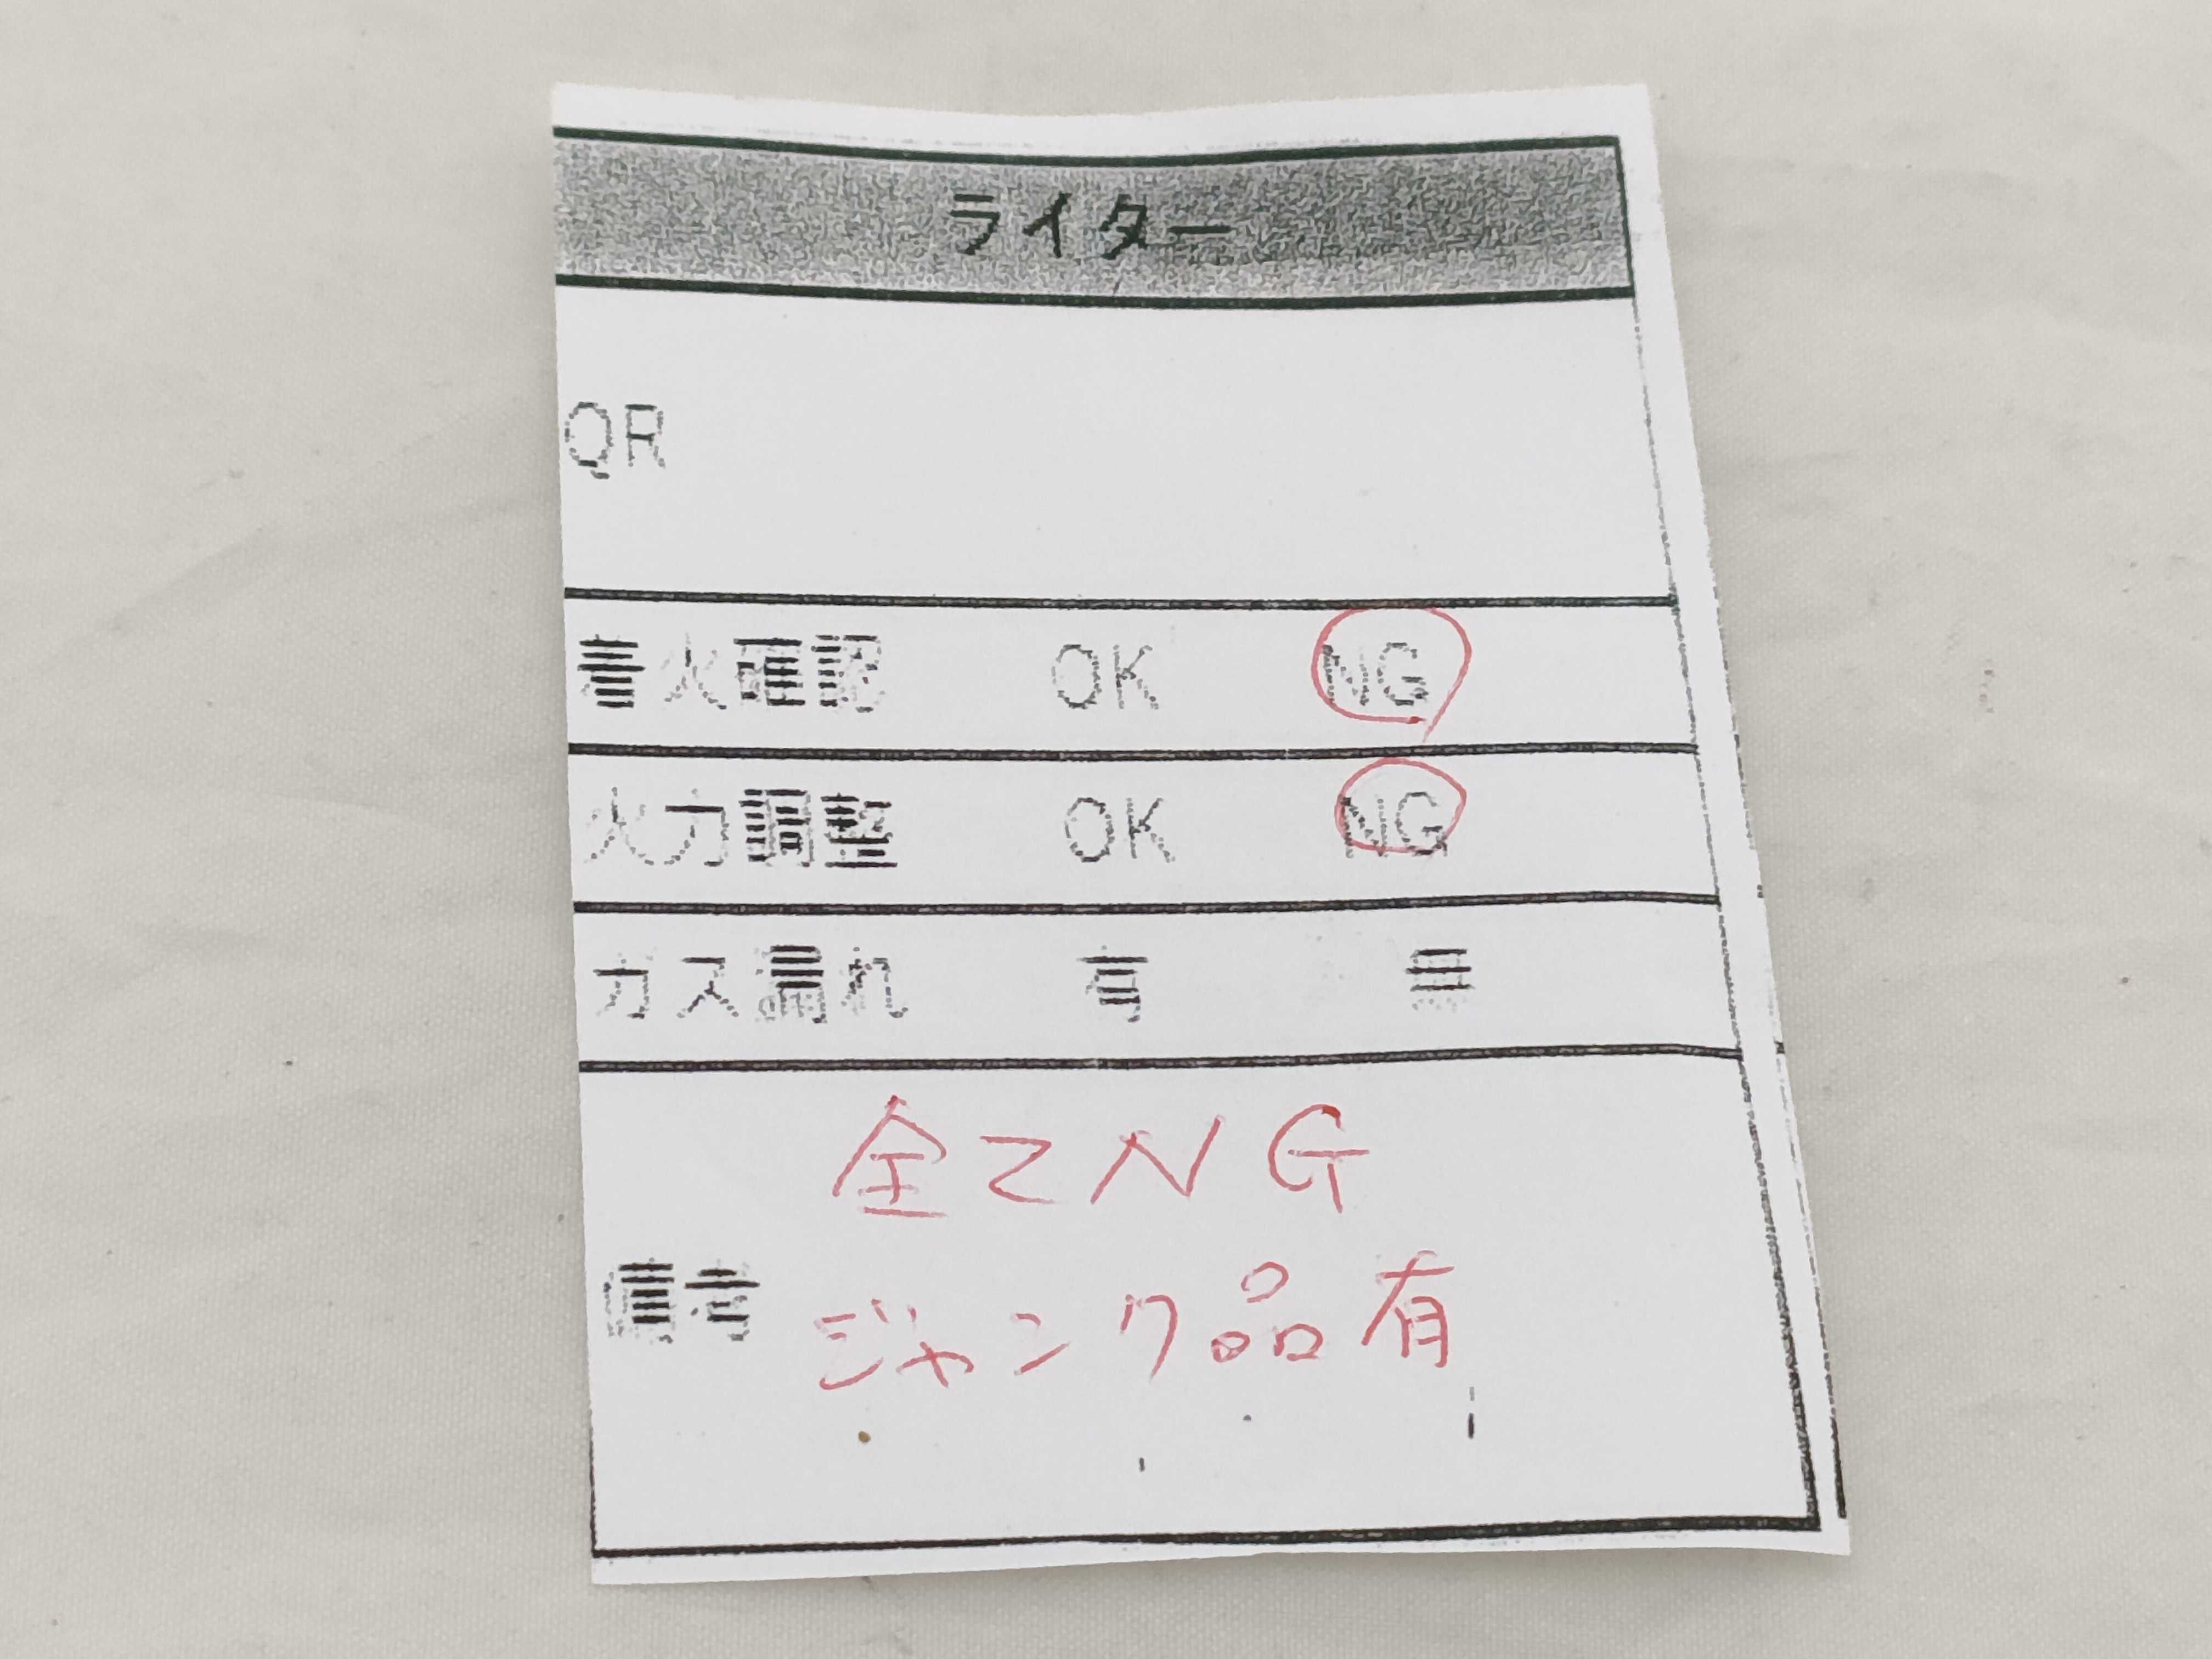 ライター
QR
着火確認 OK NG
火力調整 OK NG
ガス漏れ 有 無
全てNG
備考 ジャンク品有